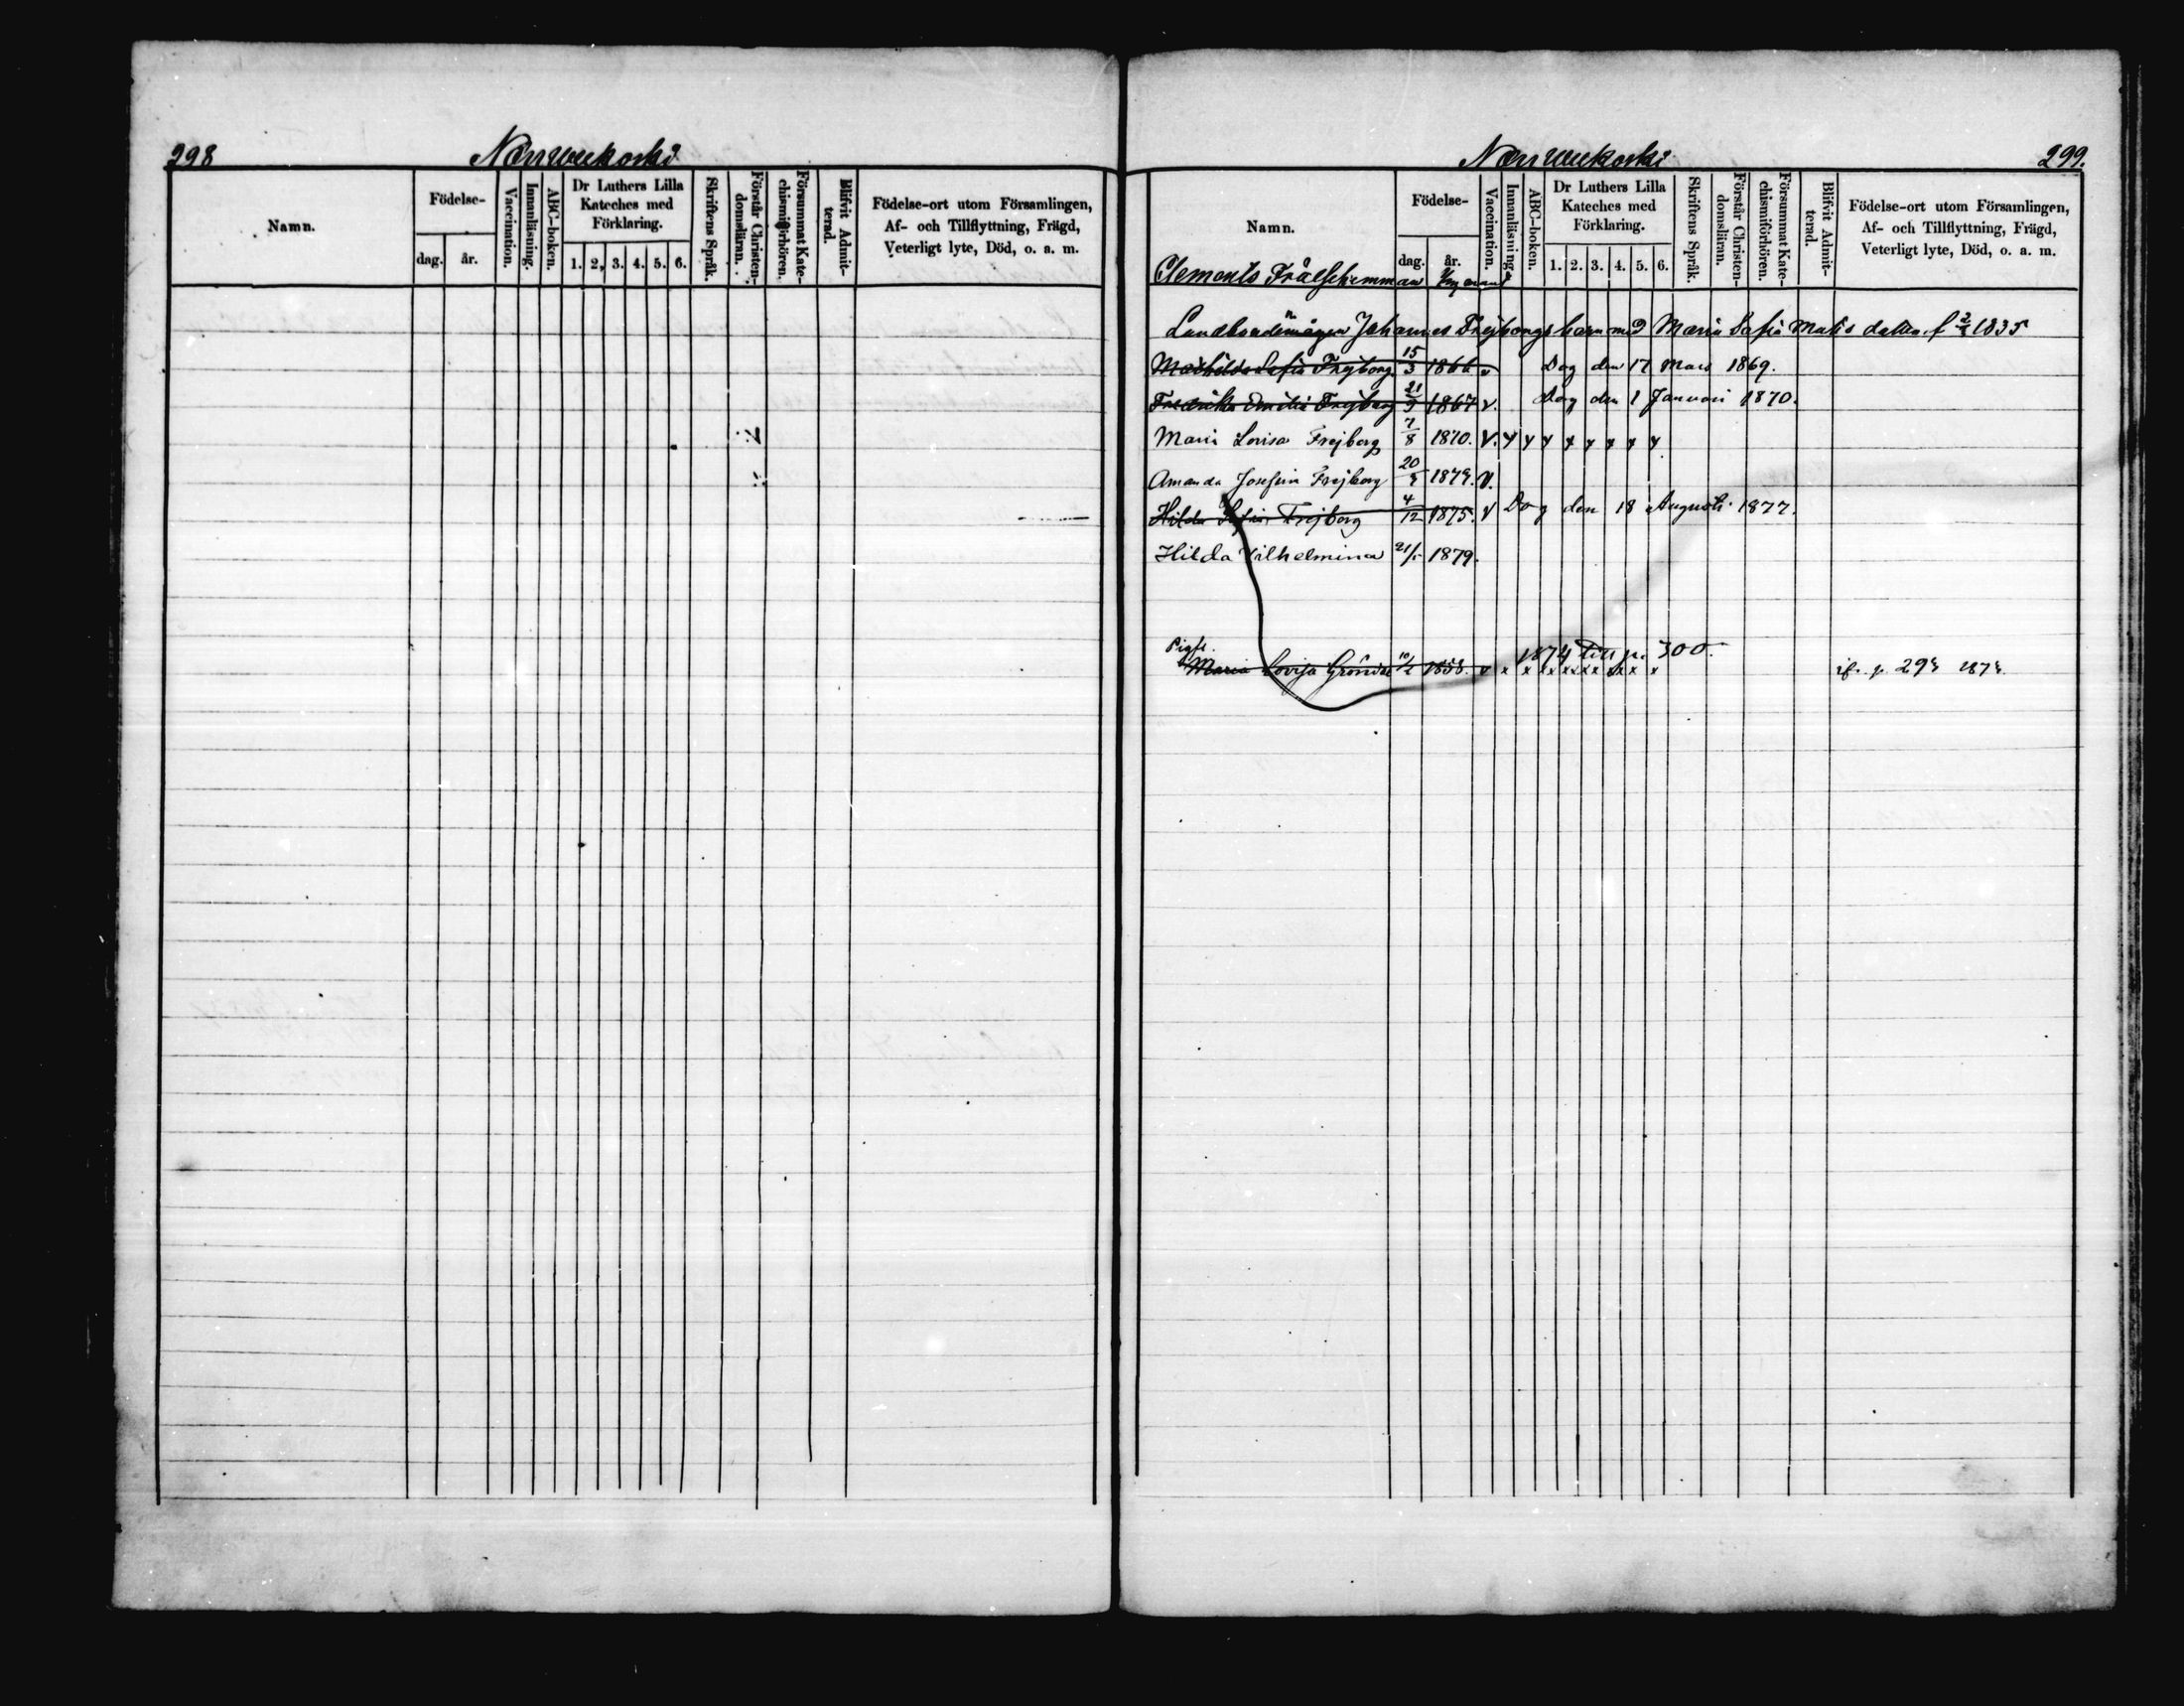 298
Norrwekoski
Namn.
Födelse-
dag. år.
Vaccination.
Innanläsning.
ABC-boken.
Dr Luthers Lilla Kateches med Förklaring.
1. 2. 3. 4. 5. 6.
Skriftens Språk.
Förstår Christendomsläran.
Försummat Katechismiförhören.
Blifvit Admitterad.
Födelse-ort utom Församlingen,
Af- och Tillflyttning, Frägd,
Veterligt lyte, Död, o. a. m.
Norrwekoski
299.
Namn.
Födelse-
dag. år.
Vaccination.
Innanläsning.
ABC-boken.
Dr Luthers Lilla Kateches med Förklaring.
1. 2. 3. 4. 5. 6.
Skriftens Språk.
Förstår Christendomsläran.
Försummat Katechismiförhören.
Blifvit Admitterad.
Födelse-ort utom Församlingen,
Af- och Tillflyttning, Frägd,
Veterligt lyte, Död, o. a. m.
Clements Frälsehemman
Johannes Frejborgs barn med Maria Sofia Mats dotter f 1835
Mathilda Sofia Frejborg 15/3 1866 v Dog den 17 Mars 1869.
Fredrika Emilia Frejborg 21/9 1867 v. Dog den 1 Januari 1870.
Maria Lovisa Frejborg 7/8 1870. v. x x x x x x x x
Amanda Josefina Frejborg 20/9 187 v.
Hilda Sofia Frejborg 4/12 1875. v Dog den 18 Augusti 1877.
Hilda Vilhelmina 21/5 1879.
Pigh.
1874 till p. 300.
Maria Lovisa Gröndal 1858. v x x x x x x x x
p. 29